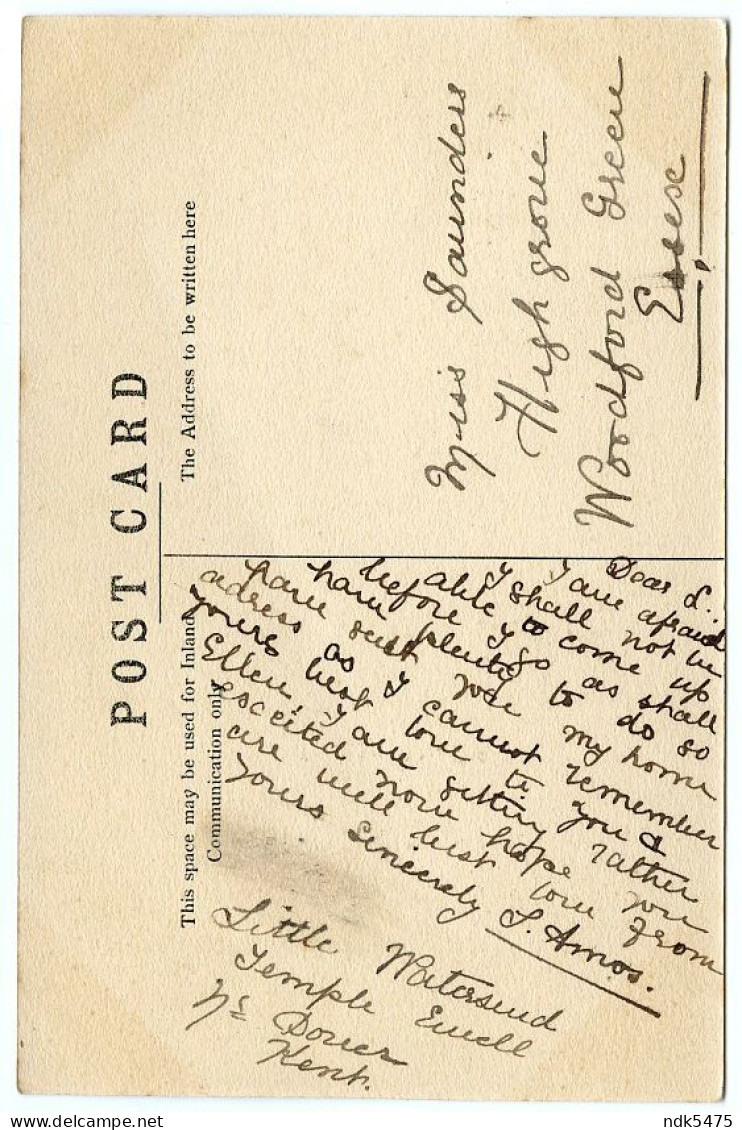 POST CARD
This space may be used for Inland
Communication only
The Address to be written here
Dear L.,
I am afraid
I shall not be
able to come up
before I go as shall
have plenty to do so
have sent you my home
adress as I cannot remember
yours best love to you &
Ellen, I am getting rather
excited now hope you
are well best love from
yours sincerely
L. Amos.
Little Watersend
Temple Ewell
Nr Dover
Kent.
Miss Saunders
High grove
Woodford Green
Essex
ndk5475